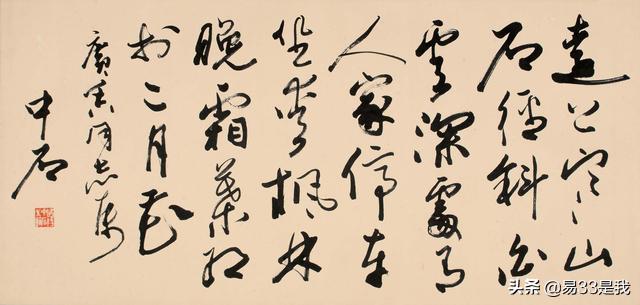 遠上寒山
石徑斜白
雲深處有
人家停車
坐愛楓林
晚霜葉紅
於二月花
廣同志属
中石
头条 @易33是我